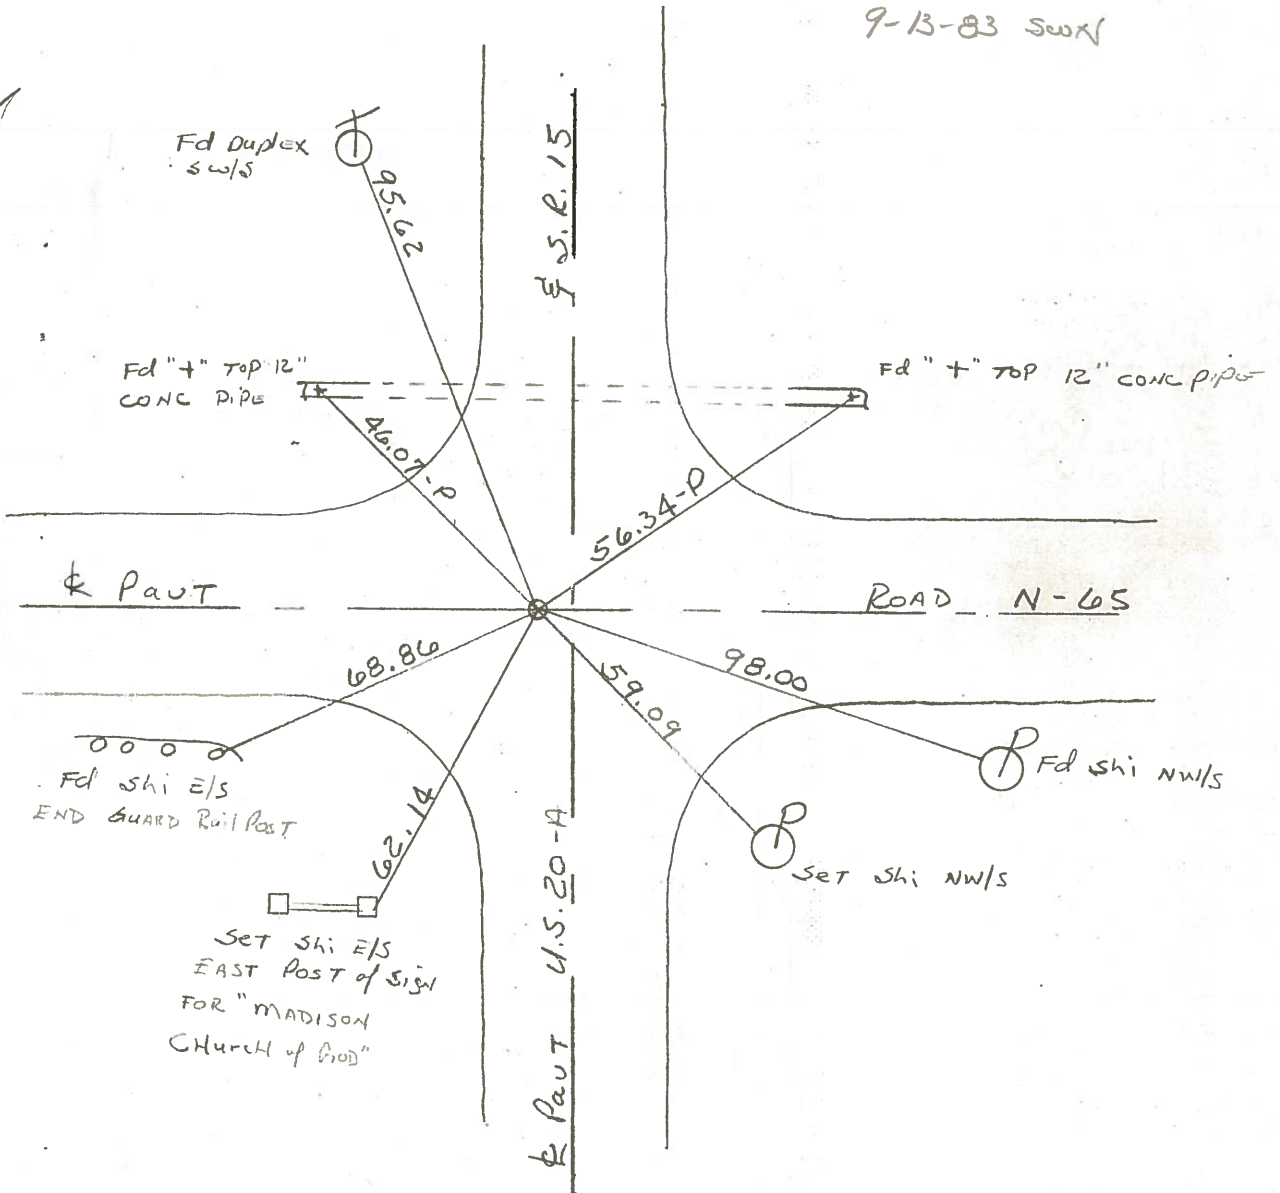 9-13-83 SWN
Fd Duplex
SW/S
95.62
℄ S.R. 15
Fd "+" TOP 12"
CONC PiPE
Fd "+" TOP 12" CONC PiPE
46.07-P
56.34-P
℄ PavT
ROAD N-65
68.86
98.00
59.09
Fd Shi E/S
END GUARD Rail POST
Fd Shi NW/S
62.14
SET Shi NW/S
SET Shi E/S
EAST POST of SigN
FOR "MADISON
CHurcH of GOD"
℄ PavT U.S. 20-A